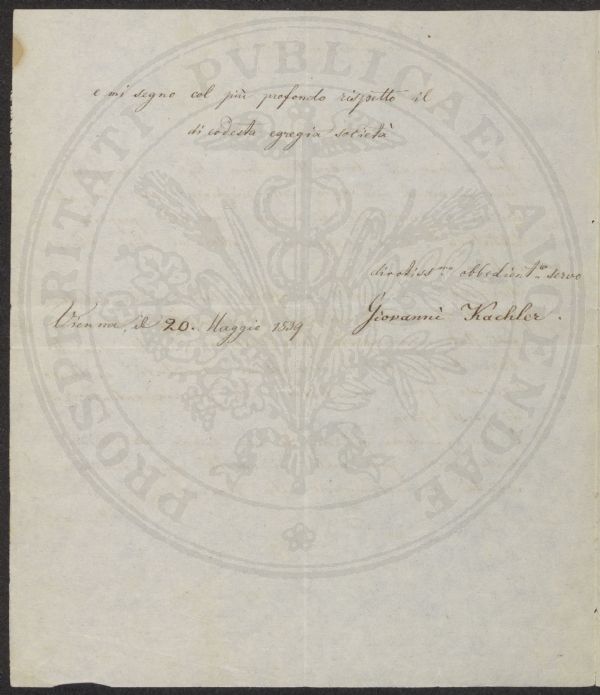 e mi segno col più profondo rispetto il
di codesta egregia società
divotiss.mo obbedient.mo servo
Vienna, il 20. Maggio 1839
Giovanni Kachler.
PROSPERITATI PVBLICAE AVGENDAE